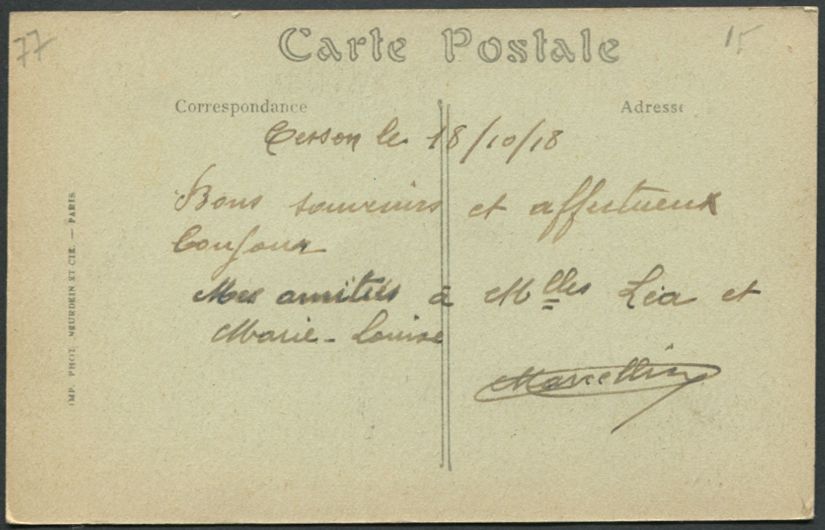 77
15
Carte Postale
Correspondance
Adresse
Cesson le 18/10/18
Bons souvenirs et affectueux
bonjour
Mes amitiés à Mlles Léa et
Marie-Louise
Marcellin
IMP. PHOT. NEURDEIN ET CIE. — PARIS